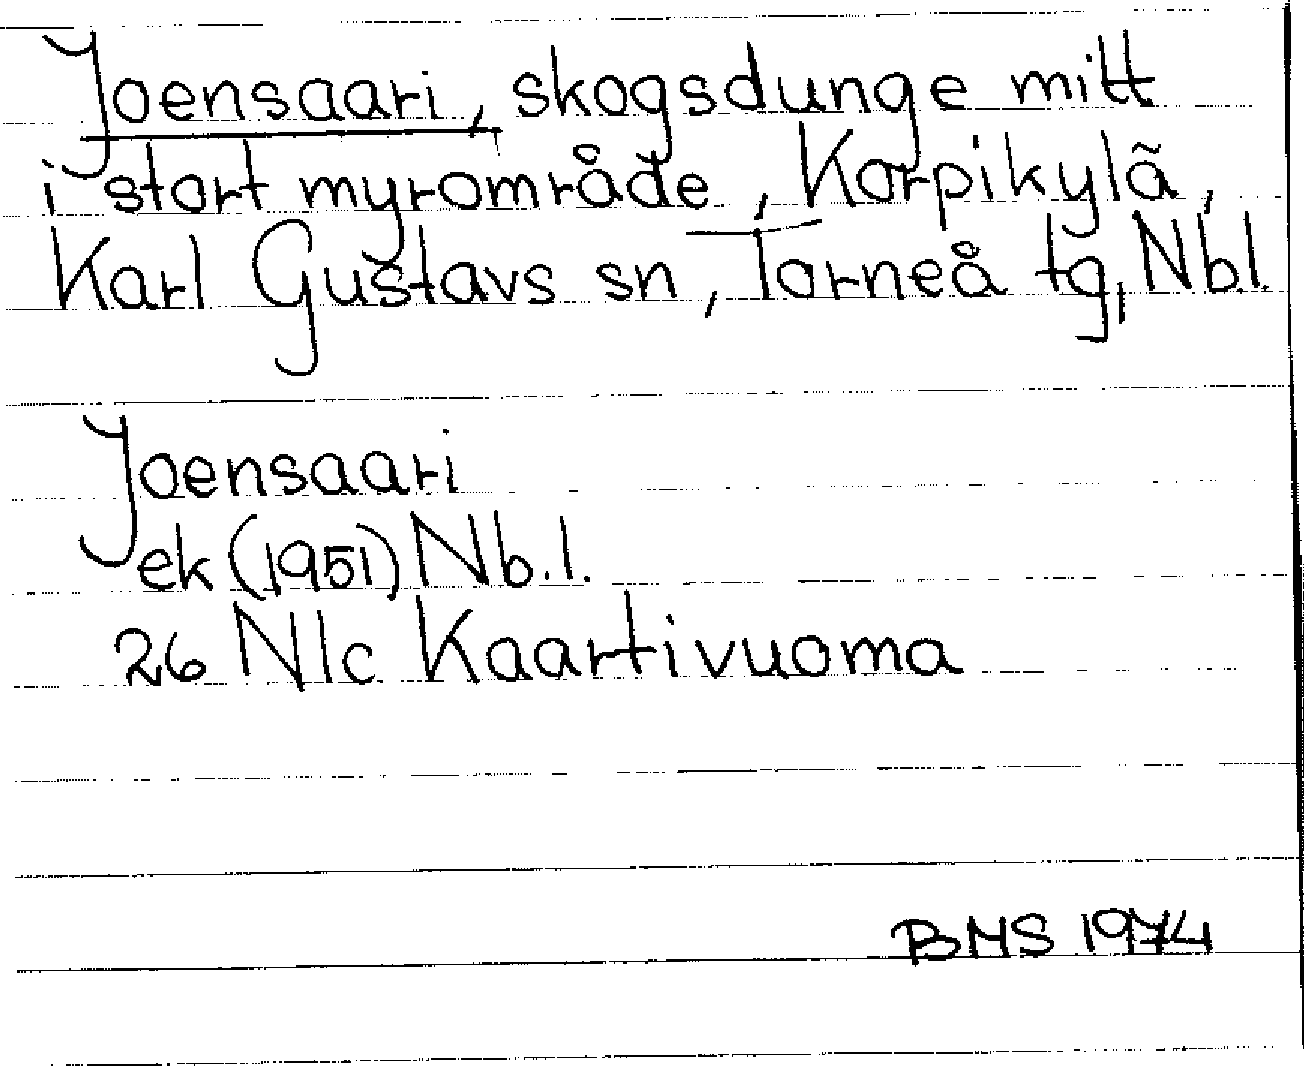 Joensaari, skogsdunge mitt
i stort myrområde, Korpikylä,
Karl Gustavs sn, Torneå tg, Nb.l.
Joensaari
ek (1951) Nb.l.
26 Nlc Kaartivuoma
BMS 1974